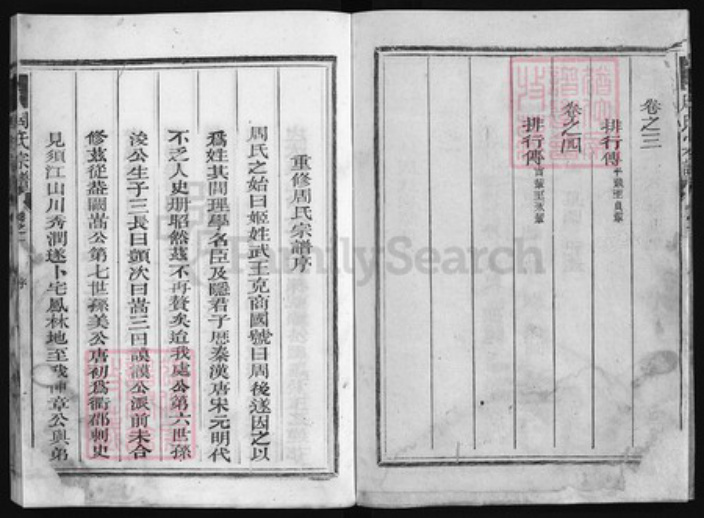 卷之三
排行傳
卷之四
排行傳
重修周氏宗譜序
周氏之始曰姬姓武王克商國號曰周後遂因之以
爲姓其間理學名臣及隱君子歷秦漢唐宋元明代
不乏人史册昭然兹不再贅矣迨我處公第六世孫
浚公生子三長曰顗次曰嵩三曰謨公派前未合
修兹從葢闕嵩公第七世孫美公唐初爲衢郡刺史
見須江山川秀潤遂卜宅鳳林地至我章公與弟
周氏宗譜
序
FamilySearch